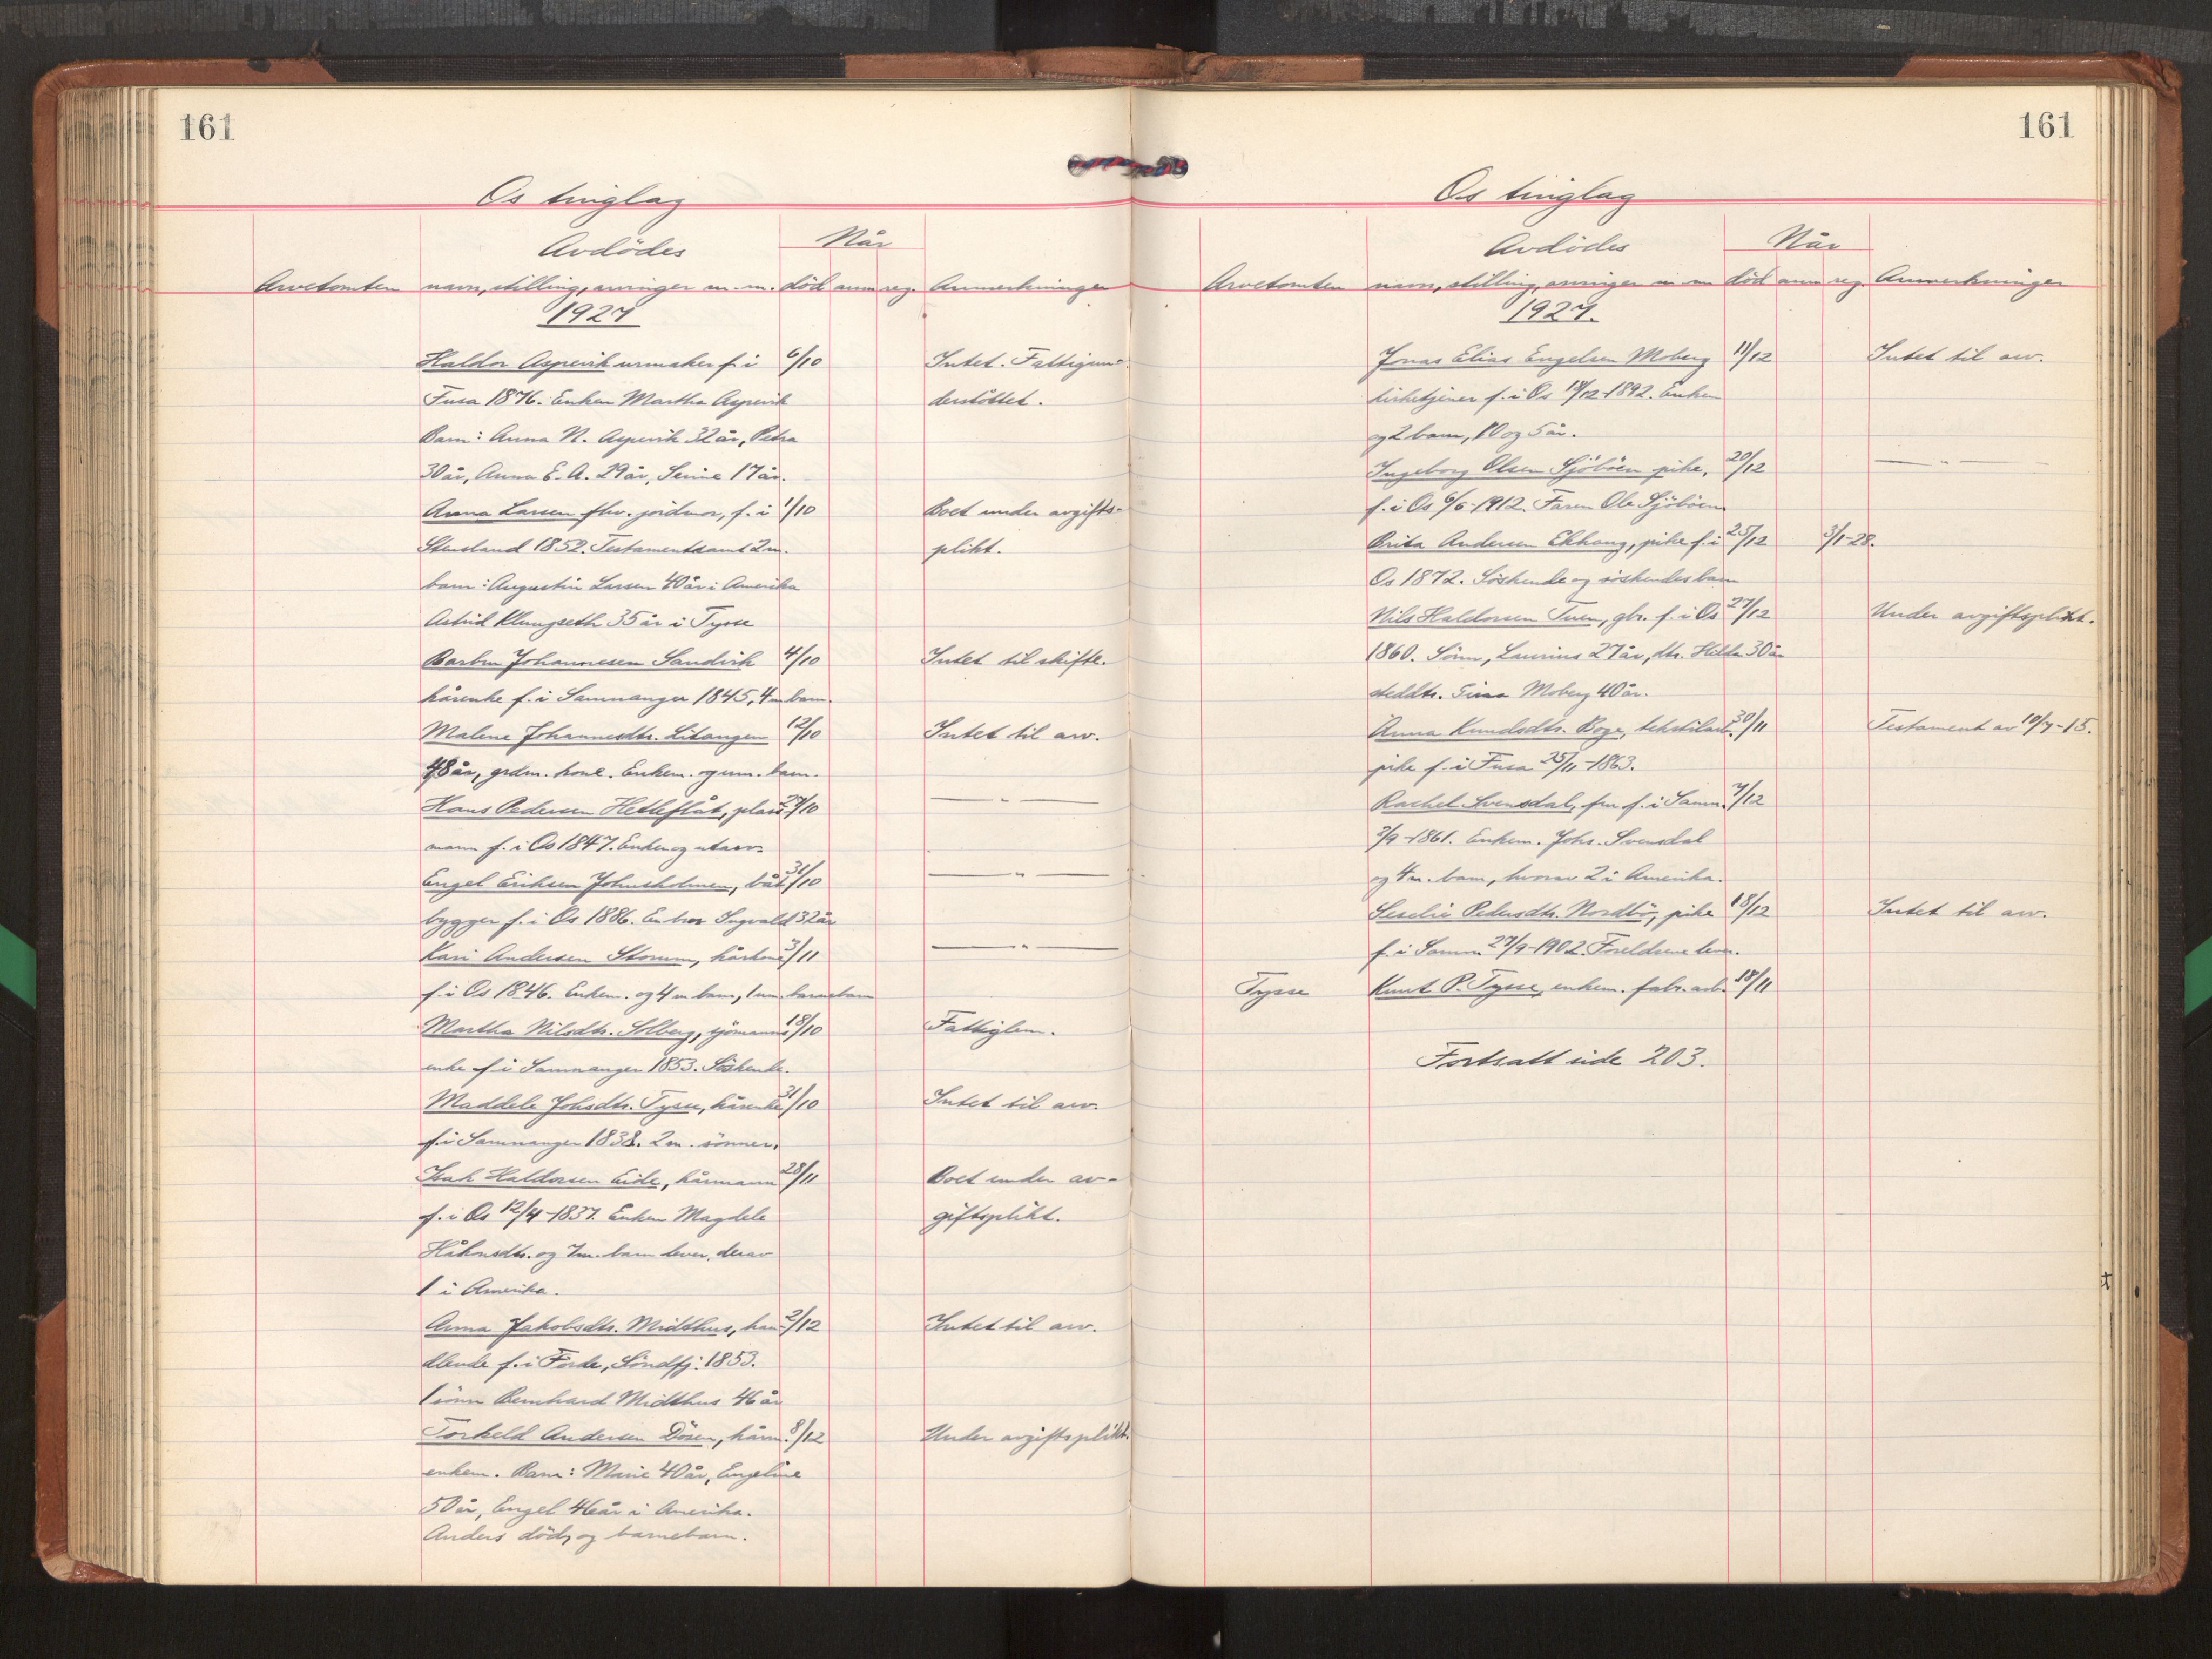 161
Os tinglag
Avdödes Når
Arvetomten navn, stilling, arvinger m.m. död anm reg. Anmerkninger
1927
Haldor Aspevik urmaker f. i 6/10 Intet. Fattigun-
Fusa 1876. Enken Martha Aspevik derstöttet.
Barn: Anna N. Aspevik 32 år, Petra
30 år, Anna E. A. 29 år, Senine 17 år.
Anna Larsen fhv. jordmor, f. i 1/10 Boet under avgifts-
Stensland 1852. Testament samt 2 m. plikt.
barn: Augustin Larsen 40 år i Amerika
Astrid Klungseth 35 år i Tysse
Barbra Johannesen Sandvik 4/10 Intet til skifte.
kårenke f. i Samnanger 1845, 4 m barn.
Malene Johannesdtr. Litangen 12/10 Intet til arv.
48 år, grdm. kone. Enkem. og um. barn.
Hans Pedersen Hetleflåt, plass 27/10 — " —
mann f. i Os 1847. Enken og utarv.
Engel Eriksen Johnsholmen, båt 31/10 — " —
bygger f. i Os 1886. En bror Ingvald 32 år
Kari Andersen Storum, kårkone 3/11 — " —
f. i Os 1846. Enkem. og 4 m barn, 1 um. barnebarn
Martha Nilsdtr. Solberg, sjömanns 18/10 Fattiglem.
enke f. i Samnanger 1853. Söskende.
Maddele Johsdtr. Tysse, kårenke 31/10 Intet til arv.
f. i Samnanger 1838. 2 m. sönner.
Isak Haldorsen Eide, kårmann 28/11 Boet under av-
f. i Os 12/4-1837. Enken Magdele giftsplikt.
Håknsdtr. og 7 m. barn lever, derav
1 i Amerika.
Anna Jakobsdtr. Midthus, han- 2/12 Intet til arv.
dlende f. i Förde, Söndfj. 1853.
1 sönn Bernhard Midthus 46 år
Torkeld Andersen Dösen, kårm. 8/12 Under avgiftsplikt.
enkem. Barn: Marie 40 år, Engeline
50 år, Engel 46 år i Amerika.
Anders död, og barnebarn.
161
Os tinglag
Avdödes Når
Arvetomten navn, stilling, arvinger m m död anm reg. Anmerkninger
1927.
Jonas Elias Engelsen Moberg 11/12 Intet til arv.
kirketjener f. i Os 18/12-1892. Enken
og 2 barn, 10 og 5 år.
Ingeborg Olsen Sjöböen pike, 20/12 — " —
f. i Os 6/6-1912. Faren Ole Sjöböen
Brita Andersen Ekhaug, pike f. i 25/12 3/1-28.
Os 1872. Söskende og söskendesbarn
Nils Haldorsen Tuen, gbr. f. i Os 27/12 Under avgiftsplikt.
1860. Sönn, Laurius 27 år, dtr. Hilda 30 år
steddtr. Sina Moberg 40 år.
Anna Knudsdtr. Boge, tekstilarb. 30/11 Testament av 10/7-15.
pike f. i Fusa 25/11-1863.
Rachel Svensdal, fru f. i Samn. 7/12
3/9-1861. Enkem. Johs. Svensdal
og 4 m. barn, hvorav 2 i Amerika.
Seselie Pedersdtr. Nordbö, pike 18/12 Intet til arv.
f. i Samn. 27/9-1902. Foreldrene lever.
Tysse Knut P. Tysse, enkem. fabr. arb. 18/11
Fortsatt side 203.